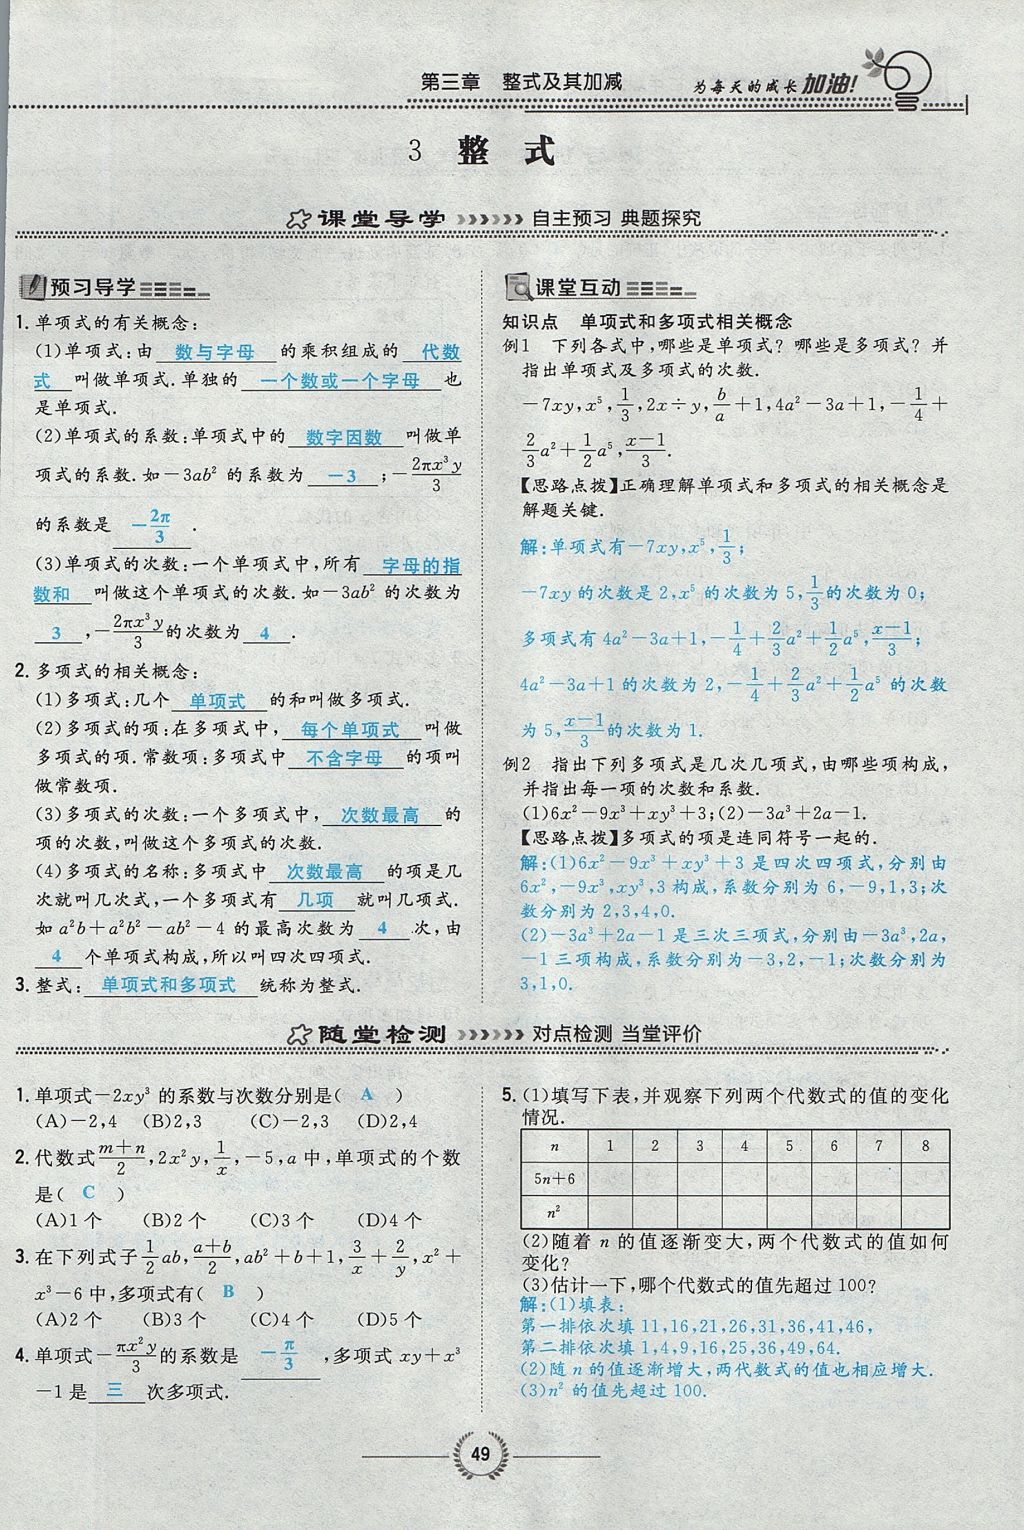 第三章　整式及其加减
为每天的成长加油!
3　整　式
课堂导学 自主预习 典题探究
预习导学
1. 单项式的有关概念:
(1)单项式:由 数与字母 的乘积组成的 代数
式 叫做单项式.单独的 一个数或一个字母 也
是单项式.
(2)单项式的系数:单项式中的 数字因数 叫做单
项式的系数.如-3ab² 的系数为 -3 ;-2πx³y/3
的系数是 -2π/3 .
(3)单项式的次数:一个单项式中,所有 字母的指
数和 叫做这个单项式的次数.如-3ab² 的次数为
3 ,-2πx³y/3的次数为 4 .
2. 多项式的相关概念:
(1)多项式:几个 单项式 的和叫做多项式.
(2)多项式的项:在多项式中, 每个单项式 叫做
多项式的项.常数项:多项式中 不含字母 的项叫
做常数项.
(3)多项式的次数:一个多项式中, 次数最高 的
项的次数,叫做这个多项式的次数.
(4)多项式的名称:多项式中 次数最高 的项是几
次就叫几次式,一个多项式有 几项 就叫几项式.
如 a²b+a²b²-ab²-4 的最高次数为 4 次,由
4 个单项式构成,所以叫四次四项式.
3. 整式: 单项式和多项式 统称为整式.
课堂互动
知识点　单项式和多项式相关概念
例1　下列各式中,哪些是单项式? 哪些是多项式? 并
指出单项式及多项式的次数.
-7xy,x⁵,1/3,2x÷y,b/a+1,4a²-3a+1,-1/4+
2/3a²+1/2a⁵,x-1/3.
【思路点拨】正确理解单项式和多项式的相关概念是
解题关键.
解:单项式有-7xy,x⁵,1/3;
-7xy 的次数是 2,x⁵ 的次数为 5,1/3的次数为 0;
多项式有 4a²-3a+1,-1/4+2/3a²+1/2a⁵,x-1/3;
4a²-3a+1 的次数为 2,-1/4+2/3a²+1/2a⁵ 的次数
为 5,x-1/3的次数为 1.
例2　指出下列多项式是几次几项式,由哪些项构成,
并指出每一项的次数和系数.
(1)6x²-9x³+xy³+3;(2)-3a³+2a-1.
【思路点拨】多项式的项是连同符号一起的.
解:(1)6x²-9x³+xy³+3 是四次四项式,分别由
6x²,-9x³,xy³,3 构成,系数分别为 6,-9,1,3;次
数分别为 2,3,4,0.
(2)-3a³+2a-1 是三次三项式,分别由-3a³,2a,
-1 三项构成,系数分别为-3,2,-1;次数分别为
3,1,0.
随堂检测 对点检测 当堂评价
1. 单项式-2xy³ 的系数与次数分别是( A )
(A)-2,4　(B)2,3　(C)-2,3　(D)2,4
2. 代数式m+n/2,2x²y,1/x,-5,a 中,单项式的个数
是( C )
(A)1 个　(B)2 个　(C)3 个　(D)4 个
3. 在下列式子1/2ab,a+b/2,ab²+b+1,3/x+2/y,x²+
x³-6 中,多项式有( B )
(A)2 个　(B)3 个　(C)4 个　(D)5 个
4. 单项式-πx²y/3的系数是 -π/3 ,多项式 xy+x³
-1 是 三 次多项式.
5. (1)填写下表,并观察下列两个代数式的值的变化
情况.
n 1 2 3 4 5 6 7 8
5n+6
n²
(2)随着 n 的值逐渐变大,两个代数式的值如何
变化?
(3)估计一下,哪个代数式的值先超过 100?
解:(1)填表:
第一排依次填 11,16,21,26,31,36,41,46,
第二排依次填 1,4,9,16,25,36,49,64.
(2)随 n 的值逐渐增大,两代数式的值也相应增大.
(3)n² 的值先超过 100.
49